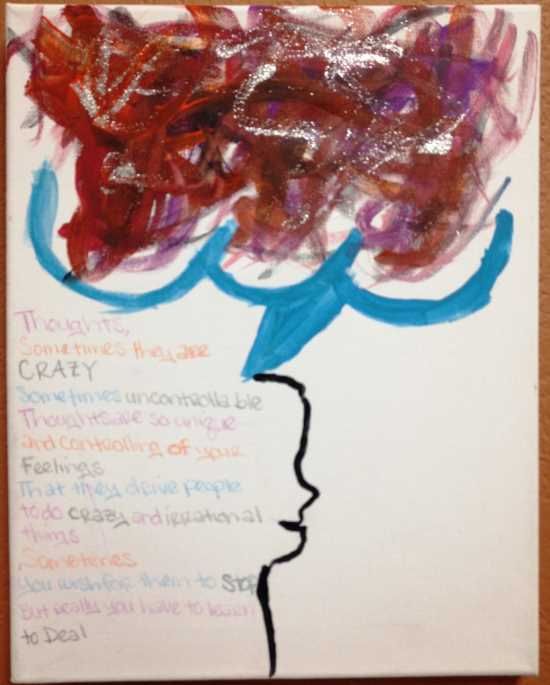 Thoughts,
Sometimes they are
CRAZY
Sometimes uncontrollable
Thoughts are so unique
and controlling of your
Feelings
That they drive people
to do crazy and irrational
things
Sometimes
You wish for them to stop
But really you have to learn
to Deal